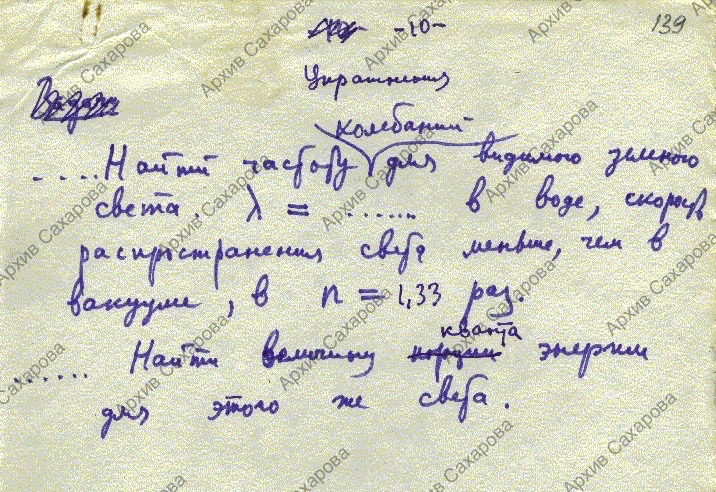 -10-
139
Упражнения
колебаний
.....Найти частоту для видимого зеленого
света. λ = ....... в воде, скорость
распространения света меньше, чем в
вакууме, в n = 1,33 раз.
кванта
...... Найти величину порции энергии
для этого же света.
Архив Сахарова